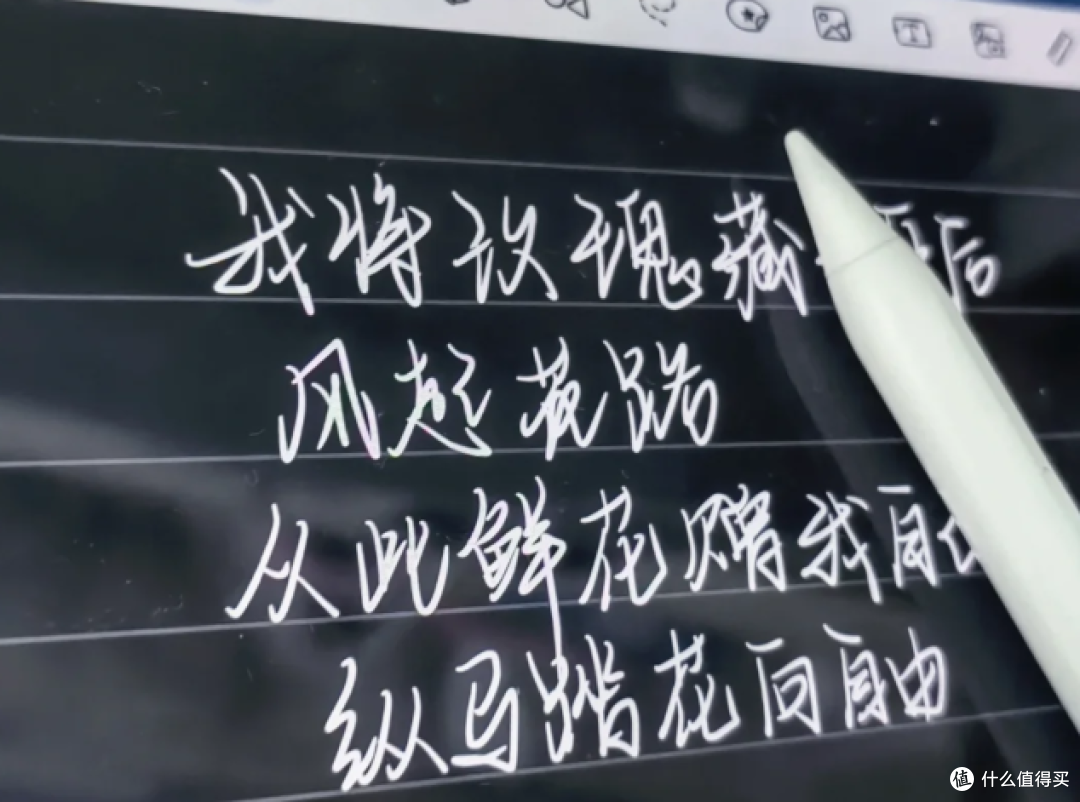 我将玫瑰藏后
风起花路
从此鲜花赠我自
纵马踏花向自由
值 什么值得买